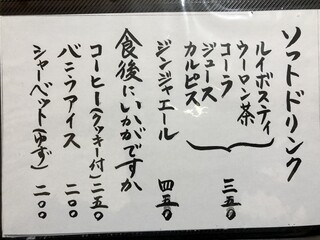 ソフトドリンク
ルイボスティ
ウーロン茶
コーラ
ジュース
カルピス
三五〇
ジンジャエール 四五〇
食後にいかがですか
コーヒー(クッキー付)二五〇
バニラアイス 二〇〇
シャーベット(ゆず) 二〇〇